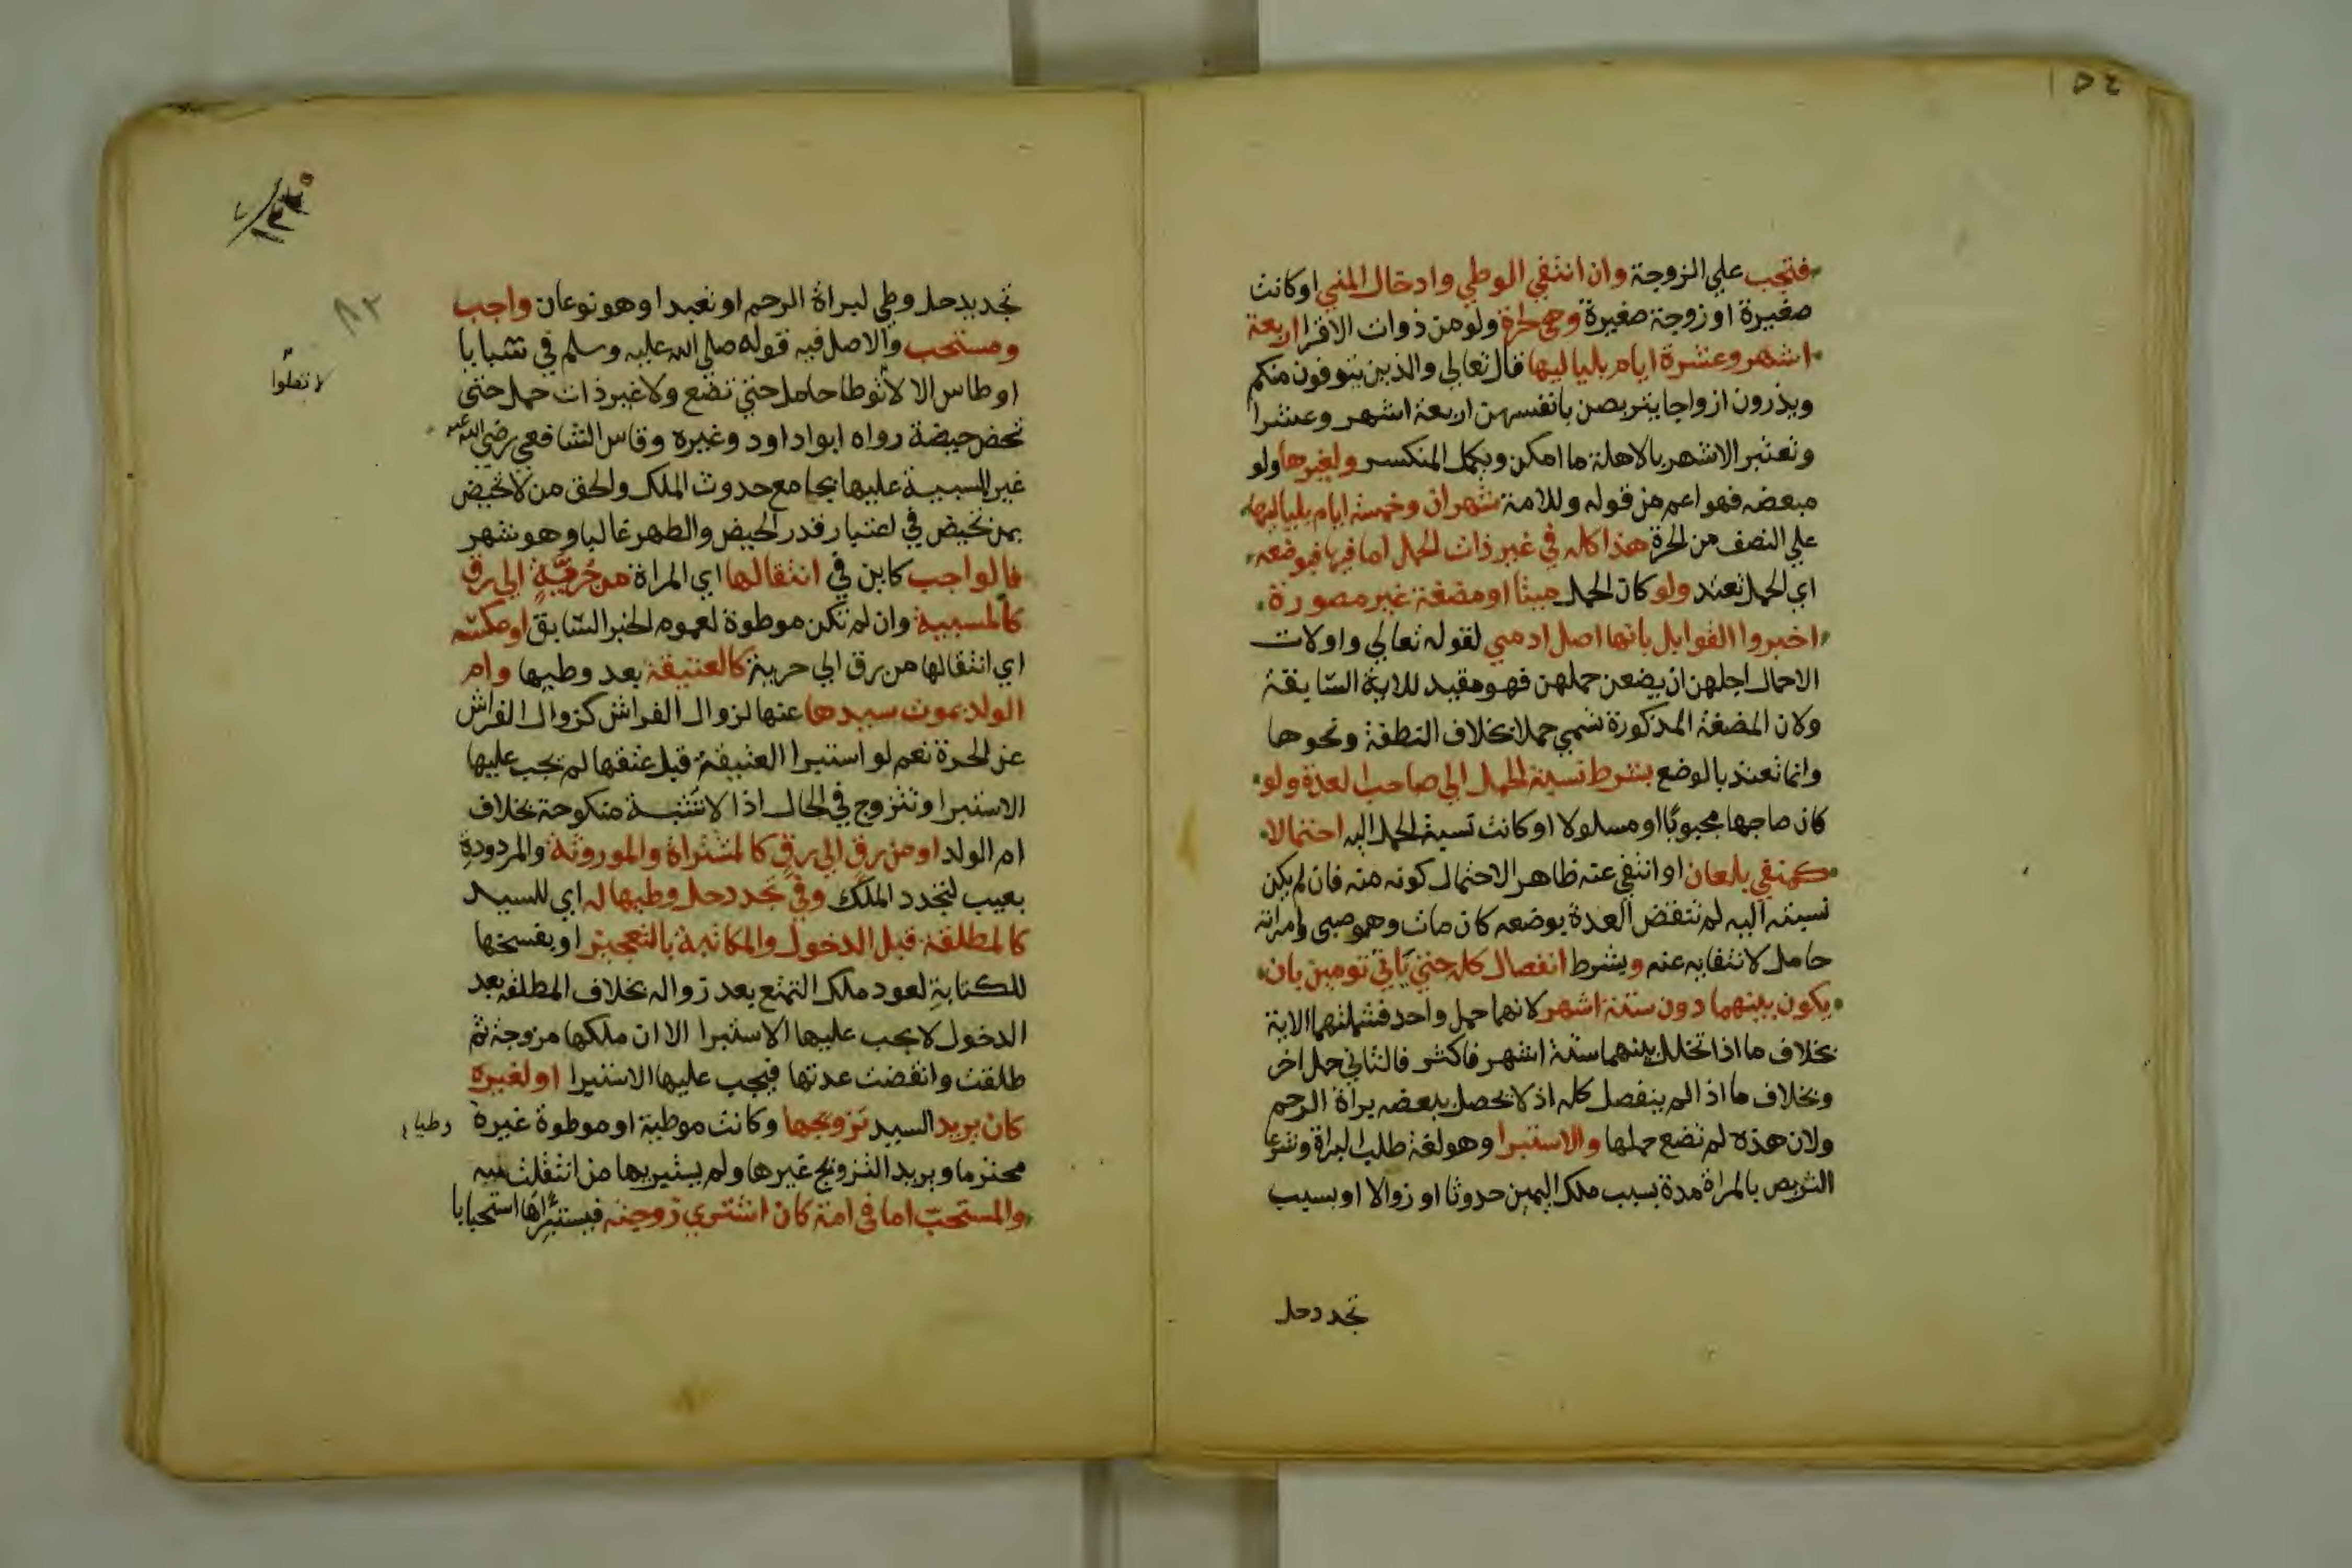 فتجب علي الزوجة وان انتفي الوطي وادخال المني اوكانت
صغيرة او زوجة صغيرة وهي لحرة ولو من ذوات الاقرا اربعة
اشهر وعشرة ايام بلياليها قال تعالي والذين يتوفون منكم
ويذرون ازواجا يتربصن بانفسهن اربعة اشهر وعشرا
وتعتبر الاشهر بالاهلة ما امكن ويكمل المنكسر ولغيرها ولو
مبعضه فهو اعم من قوله وللامة شهران وخمسة ايام بلياليها
علي النصف من الحرة هذا كله في غير ذات الحمل اما فيها فبوضعه
اي الحمل تعتد ولو كان الحمل ميتا او مضغة غير مصورة
اخبروا القوابل بانها اصل ادمي لقوله تعالي واولات
الاحمال اجلهن ان يضعن حملهن فهو مقيد للاية السابقة
ولان المضغة المذكورة تسمي حملا بخلاف النطفة ونحوها
وانما تعتد بالوضع بشرط نسبة الحمل الي صاحب العدة ولو
كان صاحبها مجبوبا او مسلولا او كانت نسبة الحمل اليه احتمالا
كمنفي بلعان او انتفي عنه ظاهر الاحتمال كونه منه فان لم يكن
نسبته اليه لم تنقض العدة بوضعه كان مات وهو صبي وامراته
حامل لانتفايه عنه ويشرط انفصال كله حتي ياتي تومين بان
يكون بينهما دون ستة اشهر لانهما حمل واحد فشملتهما الاية
بخلاف ما اذا تخلل بينهما ستة اشهر فاكثر فالثاني حمل اخر
وبخلاف ما اذا لم ينفصل كله اذ لا يحصل ببعضه براة الرحم
ولان هذه لم تضع حملها والاستبرا وهو لغة طلب البراة وشرعا
التربص بالمراة مدة بسبب ملك اليمين حدوثا او زوالا او بسبب
تجدد حل
تجديد حل وطي لبراة الرحم او تعبدا وهو نوعان واجب
ومستحب والاصل فيه قوله صلي الله عليه وسلم في سبايا
اوطاس الا لا توطا حامل حتي تضع ولا غير ذات حمل حتي
تحض حيضة رواه ابوا داود وغيره وقاس الشافعي رضي الله عنه
غير المسبية عليها بجامع حدوث الملك والحق من لا تحيض
بمن تحيض في اعتبار قدر الحيض والطهر غالبا وهو شهر
فالواجب كاين في انتقالها اي المراة من حرية الي رق
كالمسبية وان لم تكن موطوة لعموم الخبر السابق او عكسه
اي انتقالها من رق الي حرية كالعتيقة بعد وطيها وام
الولد بموت سيدها عنها لزوال الفراش كزوال الفراش
عن الحرة نعم لو استبرا العتيقة قبل عتقها لم يجب عليها
الاستبرا وتتزوج في الحال اذا لا تشبه منكوحة بخلاف
ام الولد او من رق الي رق كالمشتراة والموروثة والمردودة
بعيب لتجدد الملك وفي تجدد حل وطيها له اي للسيد
كالمطلقة قبل الدخول والمكاتبة بالتعجيز او بفسخها
للكتابة لعود ملك التمتع بعد زواله بخلاف المطلقة بعد
الدخول لا يجب عليها الاستبرا الا ان ملكها مزوجة ثم
طلقت وانقضت عدتها فيجب عليها الاستبرا او لغيره
كان يريد السيد تزويجها وكانت موطية او موطوة غيره
محترما ويريد التزويج غيرها ولم يستبريها من انتقلت منه
والمستحب اما في امة كان اشتري زوجته فيستبراها استحبابا